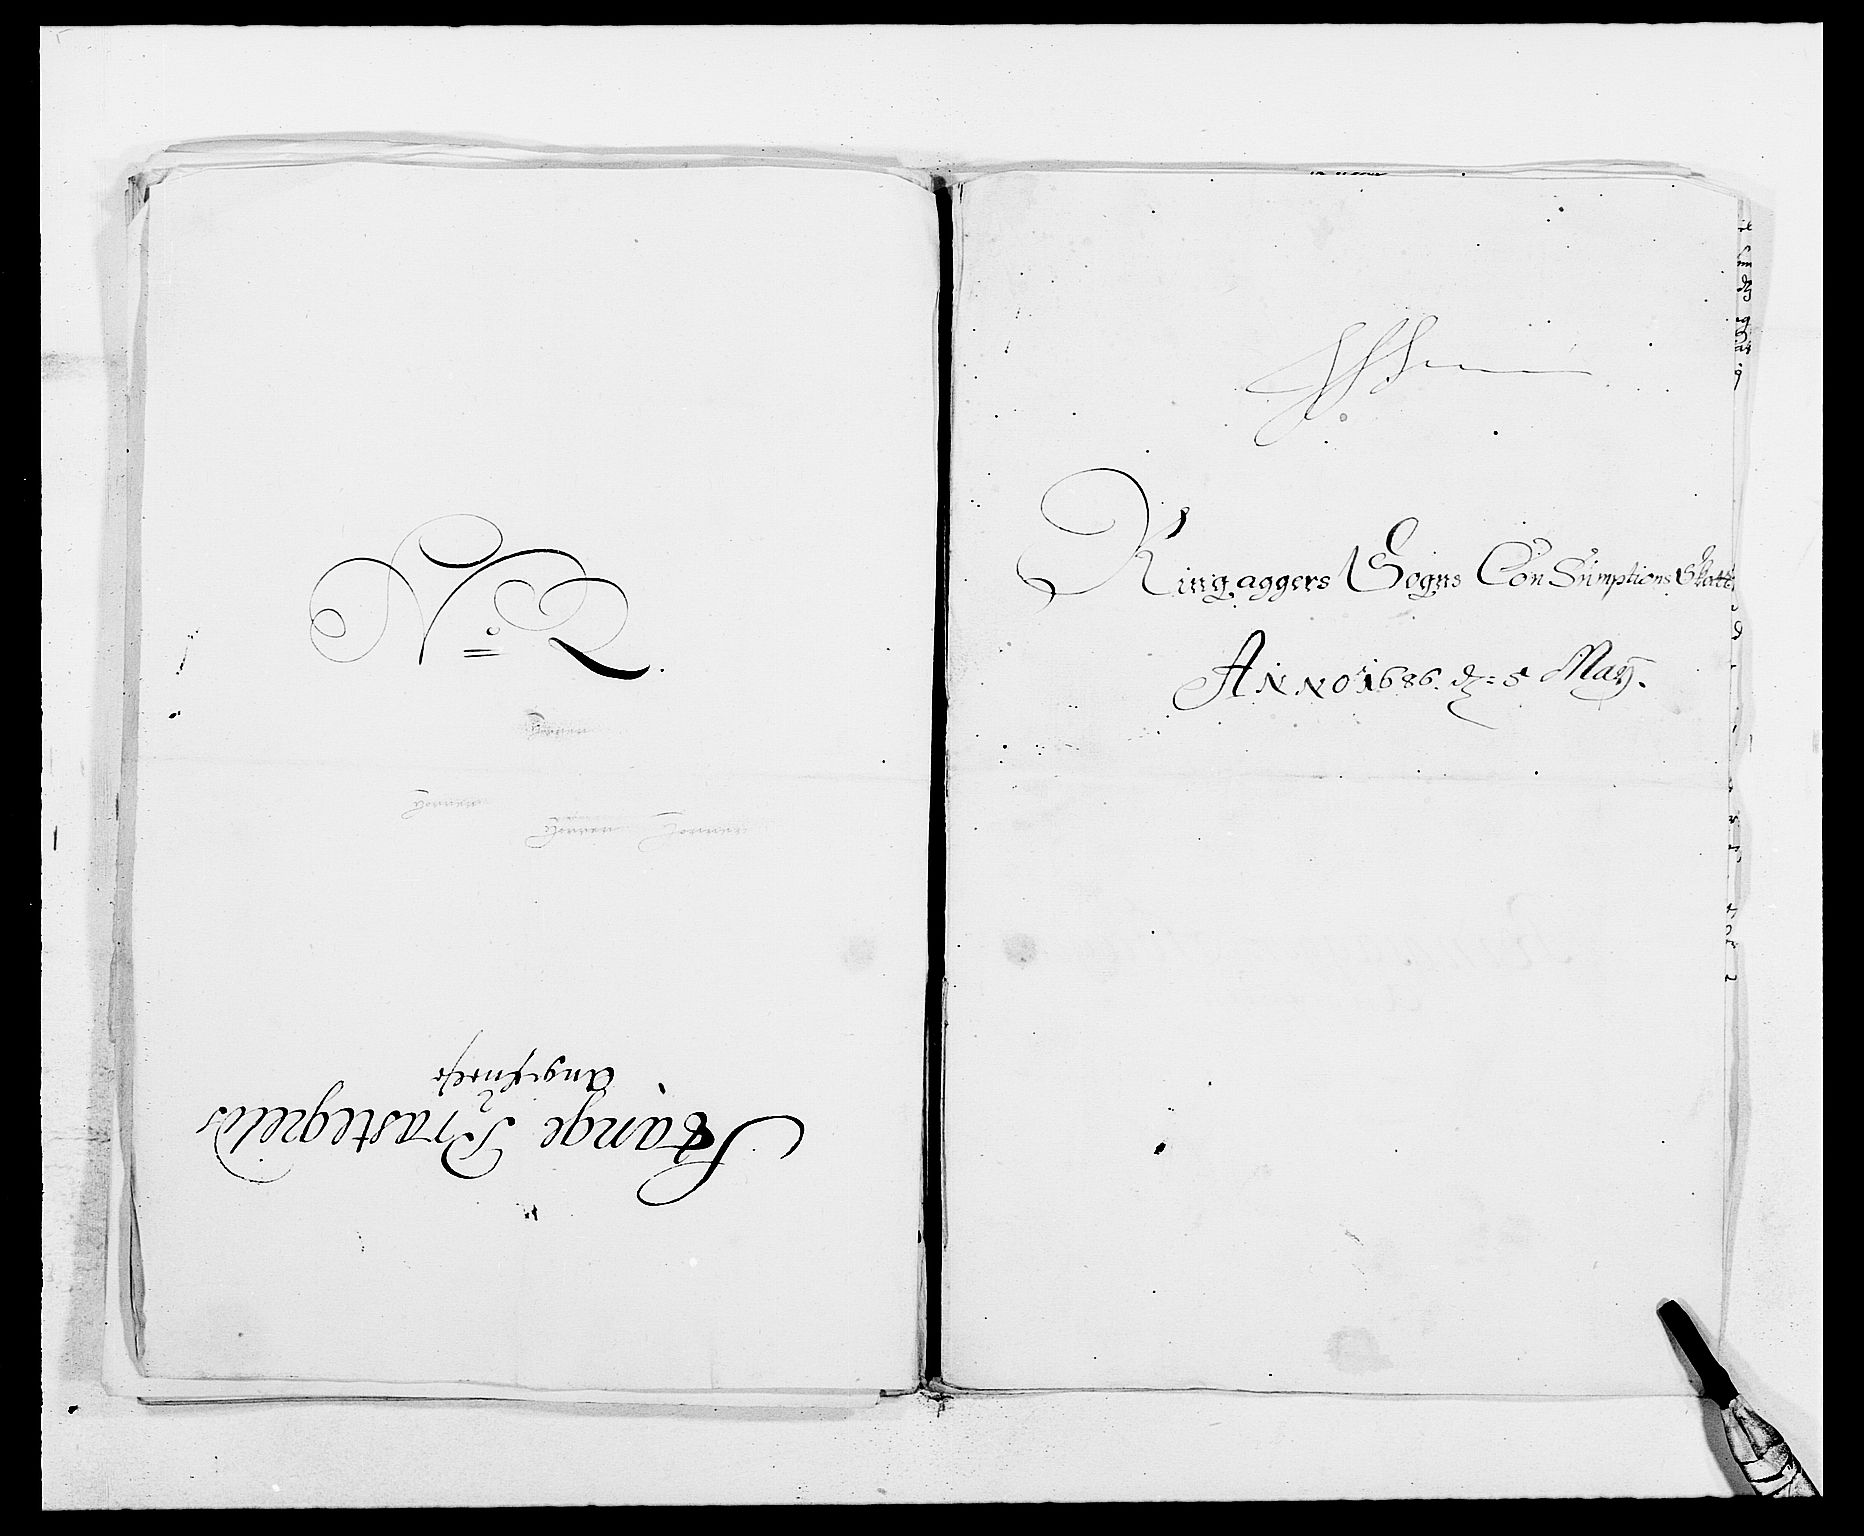 No 2.
Stange Præstegields
Angifuelse
Ringaggers Sogns ConSumptions Skatt
ANNO 1686. dz: 5 Maÿ.